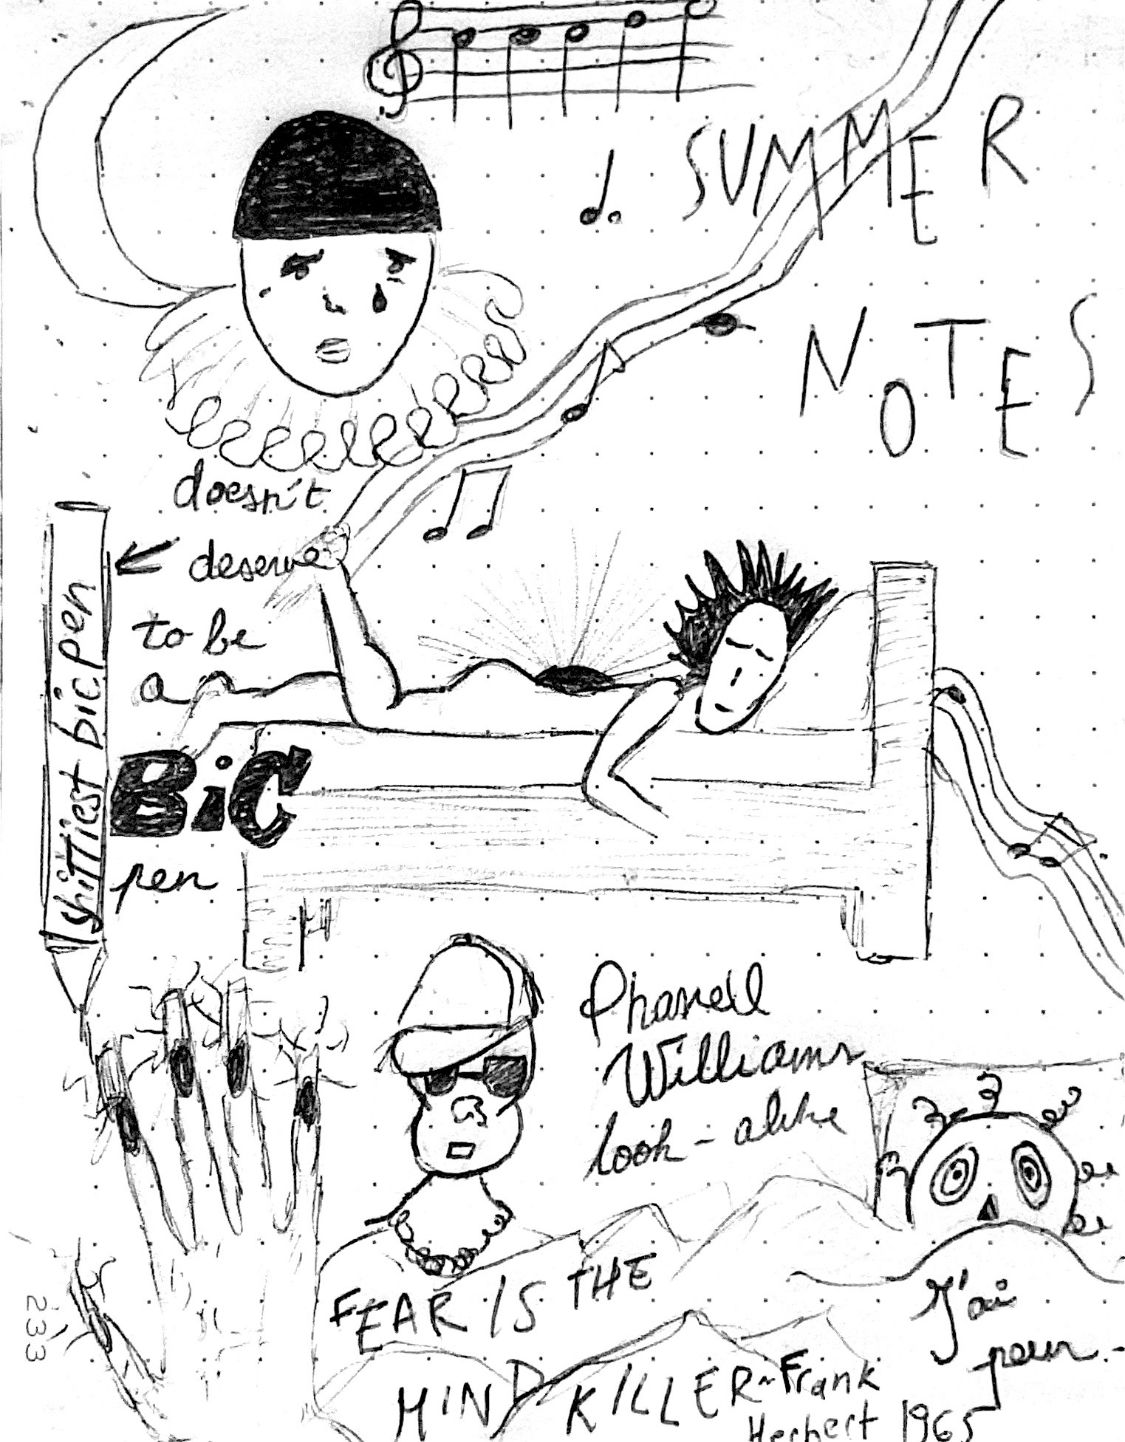 SUMMER
NOTES
doesn't
deserve
to be
a
BiC
pen
shittiest bic pen
Pharrell
Williams
look-alike
FEAR IS THE
MIND KILLER ~ Frank
Herbert 1965
J'ai
peur.
233